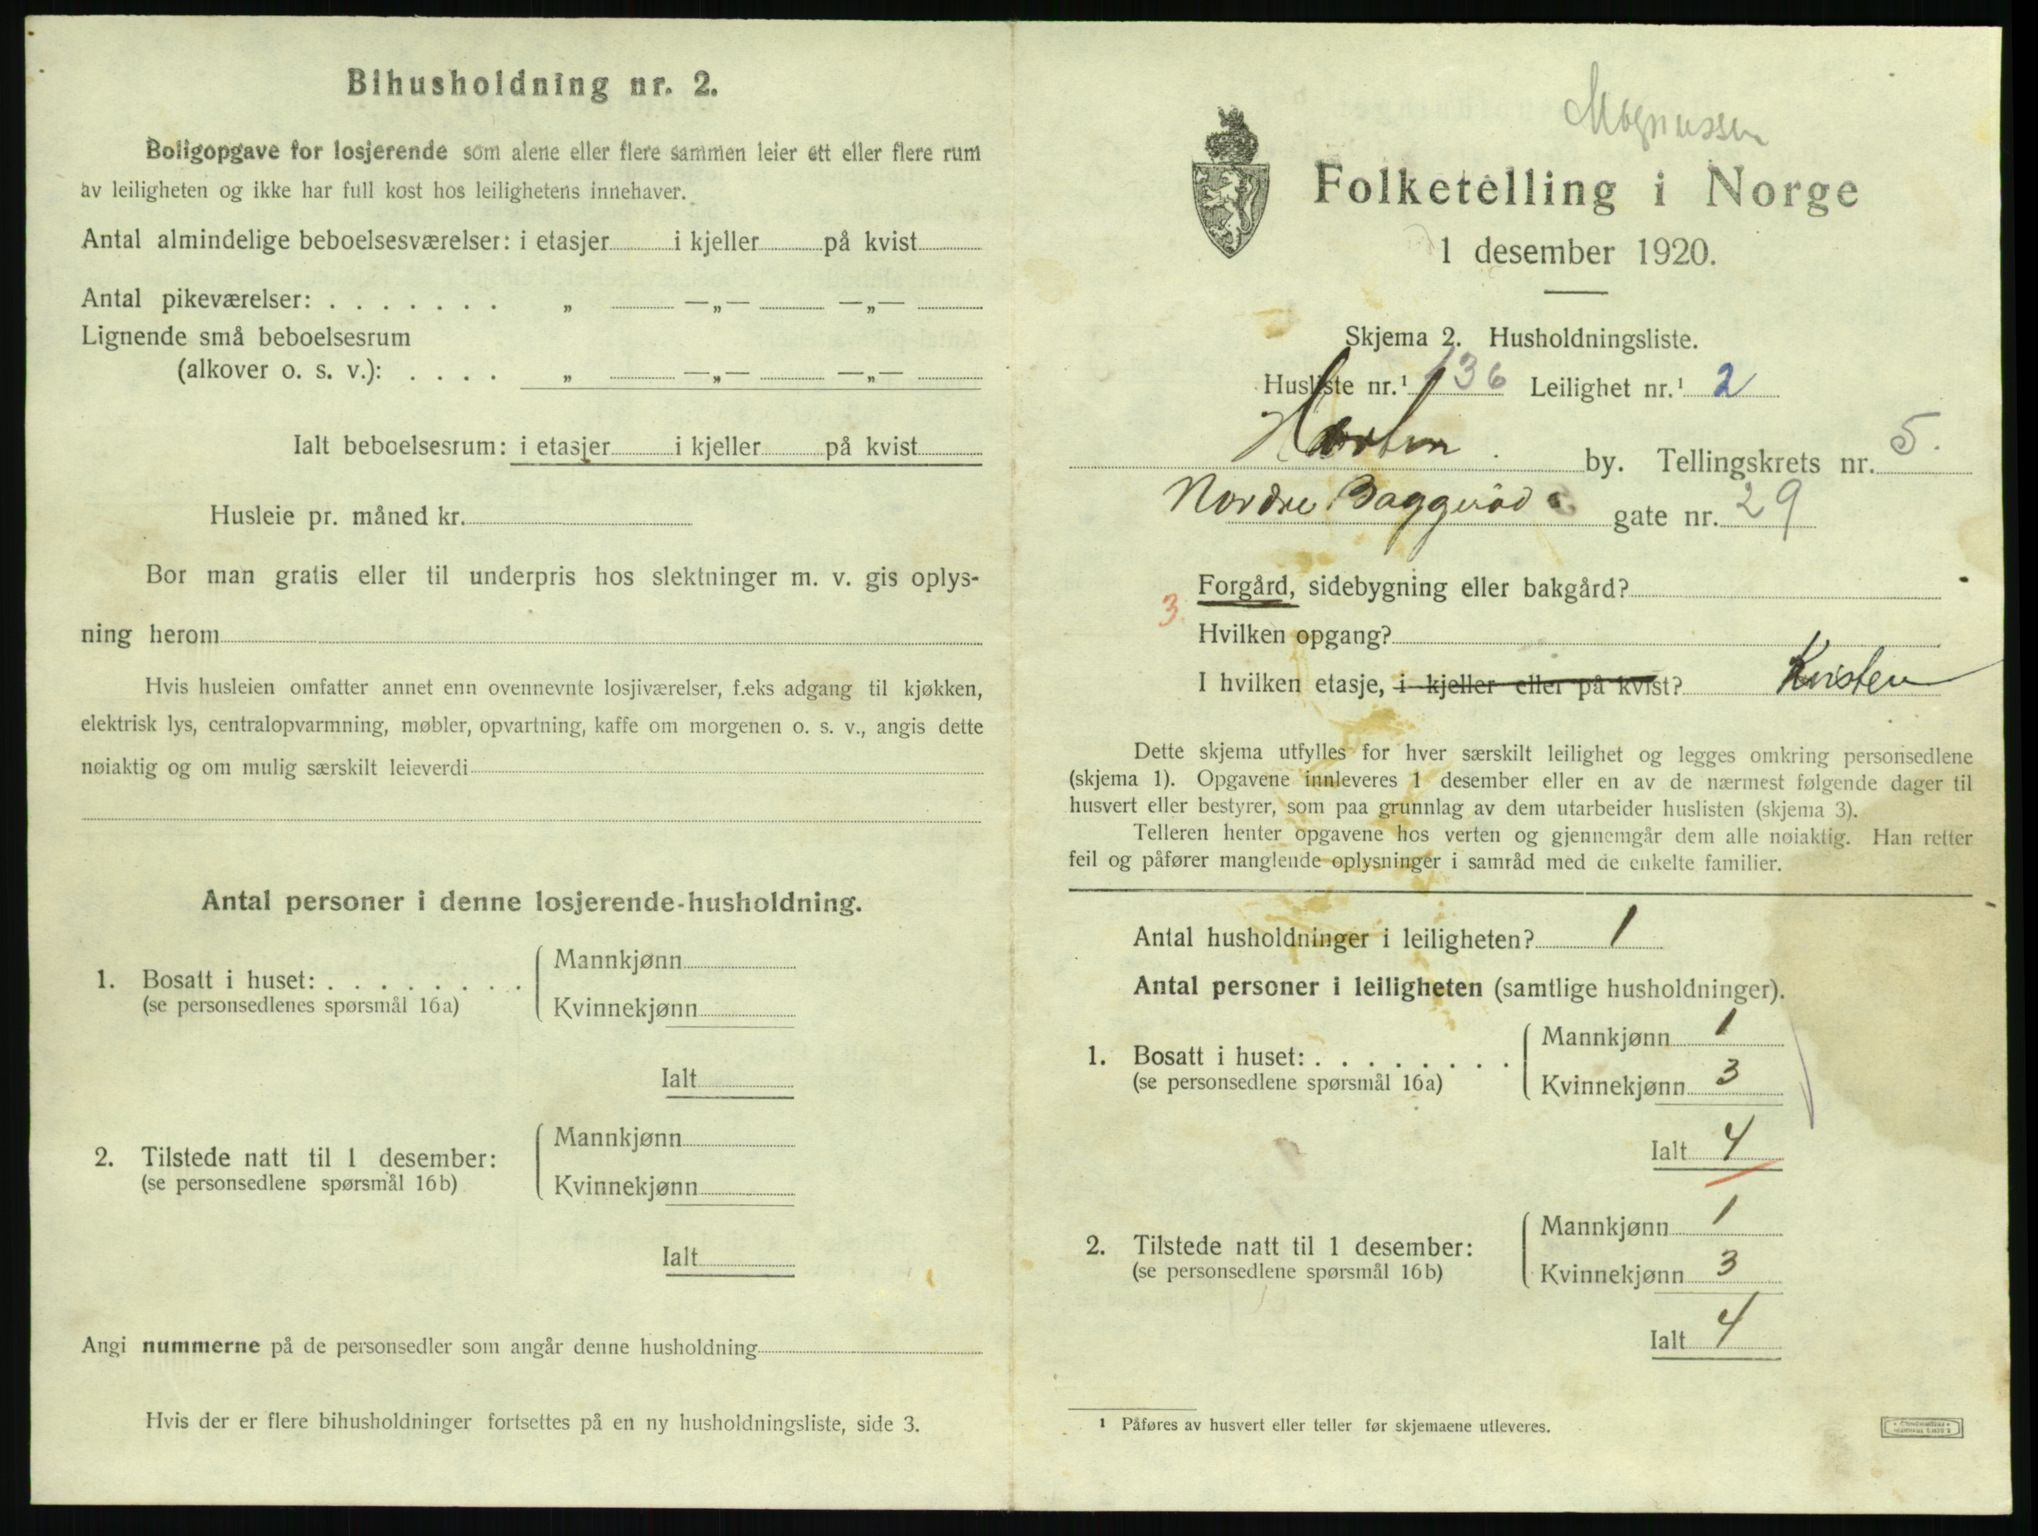 Bihusholdning nr. 2.
Boligopgave for losjerende som alene eller flere sammen leier ett eller flere rum
av leiligheten og ikke har full kost hos leilighetens innehaver.
Antal almindelige beboelsesværelser: i etasjer i kjeller på kvist
Antal pikeværelser: . . . . . . . „ —„— —„—
Lignende små beboelsesrum
(alkover o. s. v.): . . . . „ —„— —„—
Ialt beboelsesrum: i etasjer i kjeller på kvist
Husleie pr. måned kr.
Bor man gratis eller til underpris hos slektninger m. v. gis oplys-
ning herom
Hvis husleien omfatter annet enn ovennevnte losjiværelser, f.eks adgang til kjøkken,
elektrisk lys, centralopvarmning, møbler, opvartning, kaffe om morgenen o. s. v., angis dette
nøiaktig og om mulig særskilt leieverdi
Antal personer i denne losjerende-husholdning.
1. Bosatt i huset: . . . . . . . .
(se personsedlenes spørsmål 16a)
Mannkjønn
Kvinnekjønn
Ialt
2. Tilstede natt til 1 desember:
(se personsedlene spørsmål 16b)
Mannkjønn
Kvinnekjønn
Ialt
Angi nummerne på de personsedler som angår denne husholdning
Hvis der er flere bihusholdninger fortsettes på en ny husholdningsliste, side 3.
Magnussen
Folketelling i Norge
1 desember 1920.
Skjema 2. Husholdningsliste.
Husliste nr.¹ 136 Leilighet nr.¹ 2
Horten by. Tellingskrets nr. 5.
Nordre Baggerød gate nr. 29
Forgård, sidebygning eller bakgård?
3
Hvilken opgang?
I hvilken etasje, i kjeller eller på kvist? Kvisten
Dette skjema utfylles for hver særskilt leilighet og legges omkring personsedlene
(skjema 1). Opgavene innleveres 1 desember eller en av de nærmest følgende dager til
husvert eller bestyrer, som paa grunnlag av dem utarbeider huslisten (skjema 3).
Telleren henter opgavene hos verten og gjennemgår dem alle nøiaktig. Han retter
feil og påfører manglende oplysninger i samråd med de enkelte familier.
Antal husholdninger i leiligheten? 1
Antal personer i leiligheten (samtlige husholdninger).
1. Bosatt i huset: . . . . . . . .
(se personsedlene spørsmål 16a)
Mannkjønn 1
Kvinnekjønn 3
Ialt 4
2. Tilstede natt til 1 desember:
(se personsedlene spørsmål 16b)
Mannkjønn 1
Kvinnekjønn 3
Ialt 4
¹ Påføres av husvert eller teller før skjemaene utleveres.